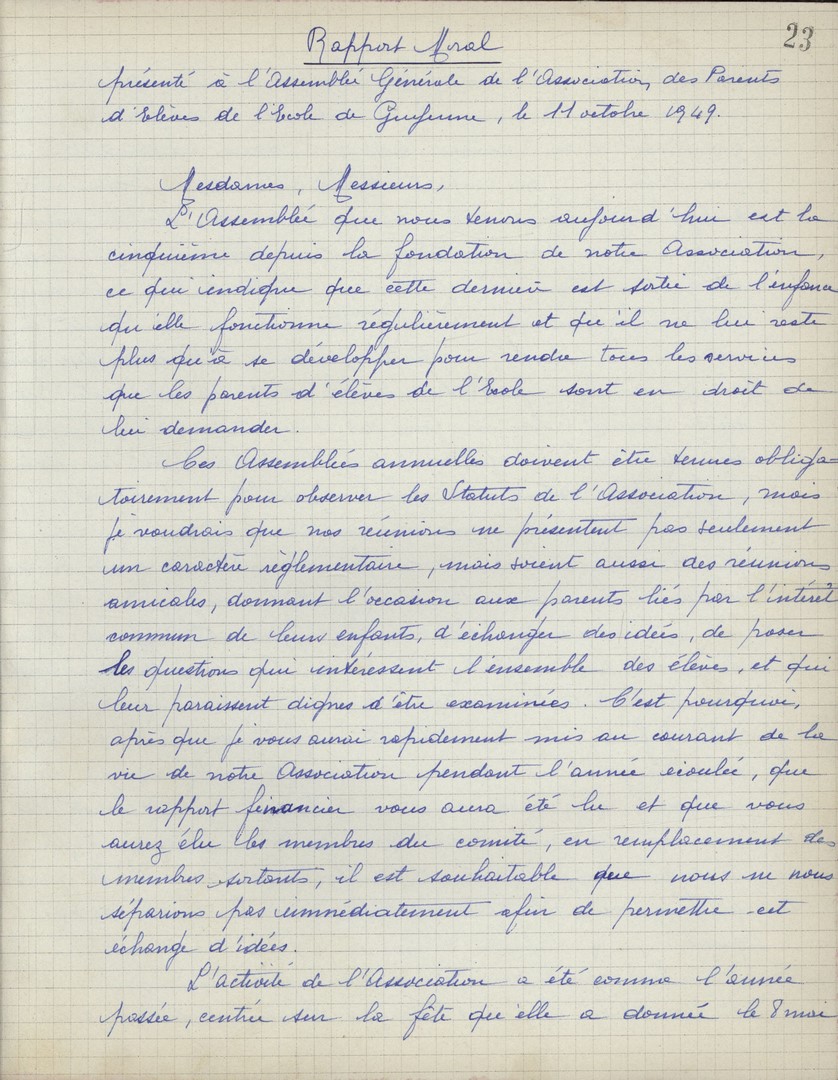 23
Rapport Moral
présenté à l'Assemblée Générale de l'Association, des Parents
d'Elèves de l'Ecole de Guyenne, le 11 octobre 1949.
Mesdames, Messieurs,
L'Assemblée que nous tenons aujourd'hui est la
cinquième depuis la fondation de notre Association,
ce qui indique que cette dernière est sortie de l'enfance
qu'elle fonctionne régulièrement et qu'il ne lui reste
plus qu'à se développer pour rendre tous les services
que les parents d'élèves de l'Ecole sont en droit de
lui demander.
Ces Assemblées annuelles doivent être tenues obliga=
toirement pour observer les Statuts de l'Association, mais
je voudrais que nos réunions ne présentent pas seulement
un caractère règlementaire, mais soient aussi des réunions
amicales, donnant l'occasion aux parents liés par l'intérêt
commun de leurs enfants, d'échanger des idées, de poser
les questions qui intéressent l'ensemble des élèves, et qui
leur paraissent dignes d'être examinées. C'est pourquoi,
après que je vous aurai rapidement mis au courant de la
vie de notre Association pendant l'année écoulée, que
le rapport financier vous aura été lu et que vous
aurez élu les membres du comité, en remplacement des
membres sortants, il est souhaitable que nous ne nous
séparions pas immédiatement afin de permettre cet
échange d'idées.
L'activité de l'Association a été comme l'année
passée, centrée sur la fête qu'elle a donnée le 8 mai